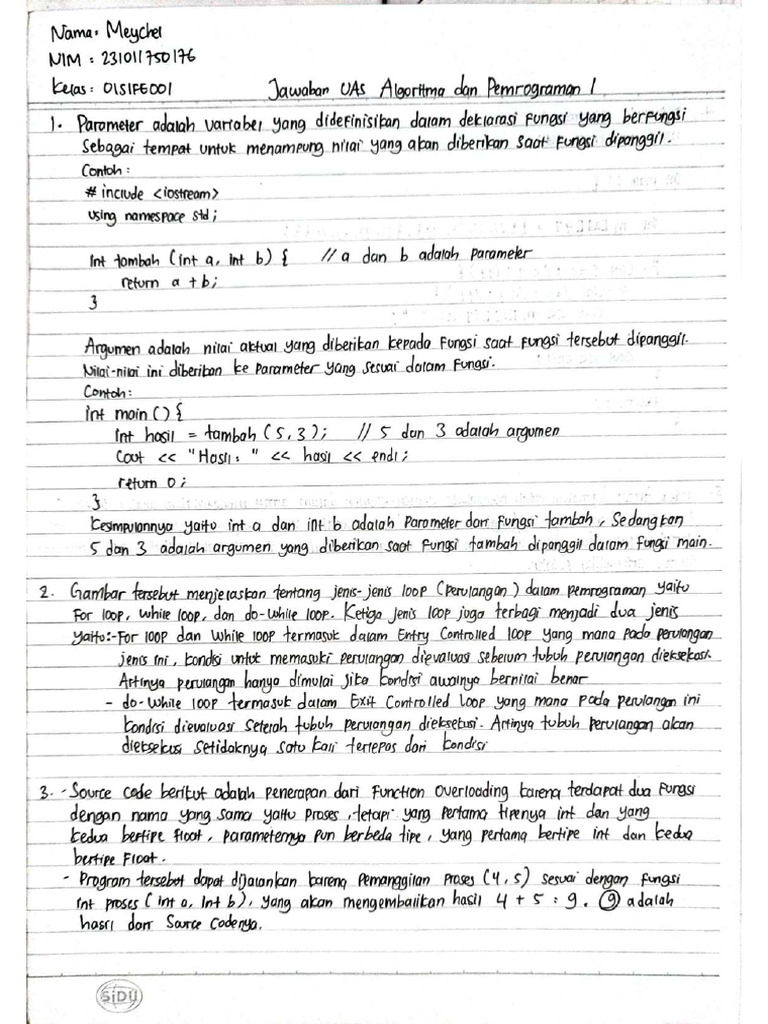 Nama: Meychel
NIM : 231011750176
Kelas : 01SIFE001
Jawaban UAS Algoritma dan Pemrograman 1
1. Parameter adalah variabel yang didefinisikan dalam deklarasi fungsi yang berfungsi
sebagai tempat untuk menampung nilai yang akan diberikan saat fungsi dipanggil.
Contoh :
# include <iostream>
using namespace std ;
int tambah (int a, int b) { // a dan b adalah parameter
return a + b ;
}
Argumen adalah nilai aktual yang diberikan kepada fungsi saat fungsi tersebut dipanggil.
Nilai-nilai ini diberikan ke parameter yang sesuai dalam fungsi.
Contoh :
int main () {
int hasil = tambah (5, 3) ; // 5 dan 3 adalah argumen
Cout << "Hasil : " << hasil << endl ;
return 0 ;
}
Kesimpulannya yaitu int a dan int b adalah parameter dari fungsi tambah, Sedangkan
5 dan 3 adalah argumen yang diberikan saat fungsi tambah dipanggil dalam fungsi main.
2. Gambar tersebut menjelaskan tentang jenis-jenis loop (perulangan) dalam pemrograman yaitu
For loop, while loop, dan do-while loop. Ketiga jenis loop juga terbagi menjadi dua jenis
yaitu:-For loop dan While loop termasuk dalam Entry Controlled loop yang mana pada perulangan
jenis ini, kondisi untuk memasuki perulangan dievaluasi sebelum tubuh perulangan dieksekusi.
Artinya perulangan hanya dimulai jika kondisi awalnya bernilai benar
- do-while loop termasuk dalam Exit Controlled Loop yang mana pada perulangan ini
kondisi dievaluasi setelah tubuh perulangan dieksekusi. Artinya tubuh perulangan akan
dieksekusi setidaknya satu kali terlepas dari kondisi
3. - Source code berikut adalah penerapan dari Function Overloading karena terdapat dua fungsi
dengan nama yang sama yaitu proses, tetapi yang pertama tipenya int dan yang
kedua bertipe float, parameternya pun berbeda tipe, yang pertama bertipe int dan kedua
bertipe Float.
- Program tersebut dapat dijalankan karena pemanggilan proses (4, 5) sesuai dengan fungsi
int proses (int a, int b), yang akan mengembalikan hasil 4 + 5 = 9. 9 adalah
hasil dari source codenya.
SiDU